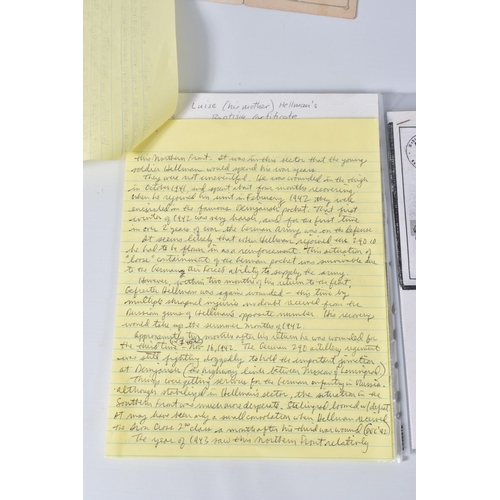 Luise (his mother) Hellman's
Baptism Certificate
this Northern Front. It was in this sector that the young
soldier Hellman would spend his war years.
They were not uneventful. He was wounded in the thigh
in October 1941, and spent about four months recovering,
when he rejoined his unit in February, 1942 they were
encircled in the famous Demjansk pocket. That first
winter of 1942 was very harsh, and for the first time
in over 2 years of war the German Army was on the defense
It seems likely that when Hellman rejoined the 290 ID
he had to be flown in as a reinforcement. This situation of
"loose" containment of the German pocket was survivable due
to the German Air Force's ability to supply the army.
However, within two months of his return to the front,
Gefreite Hellman was again wounded - this time by
multiple shrapnel injuries no doubt received from the
Russian guns of Hellman's opposite number. This recovery
would take up the summer months of 1942.
Approximately two months after his return he was wounded for
the third time Nov 16, 1942. The German 290 artillery regiment
was still fighting doggedly to hold the important junction
at Demjansk (the highway link between Moscow & Leningrad)
Things were getting serious for the German infantry in Russia.
although stabilized in Hellman's sector, the situation in the
Southern front was much more desperate. Stalingrad loomed w/ defeat
It may have been only a small consolation when Hellman received
the Iron Cross 2nd class a month after his third war wound (Dec '42
The year of 1943 saw this Northern Front relatively